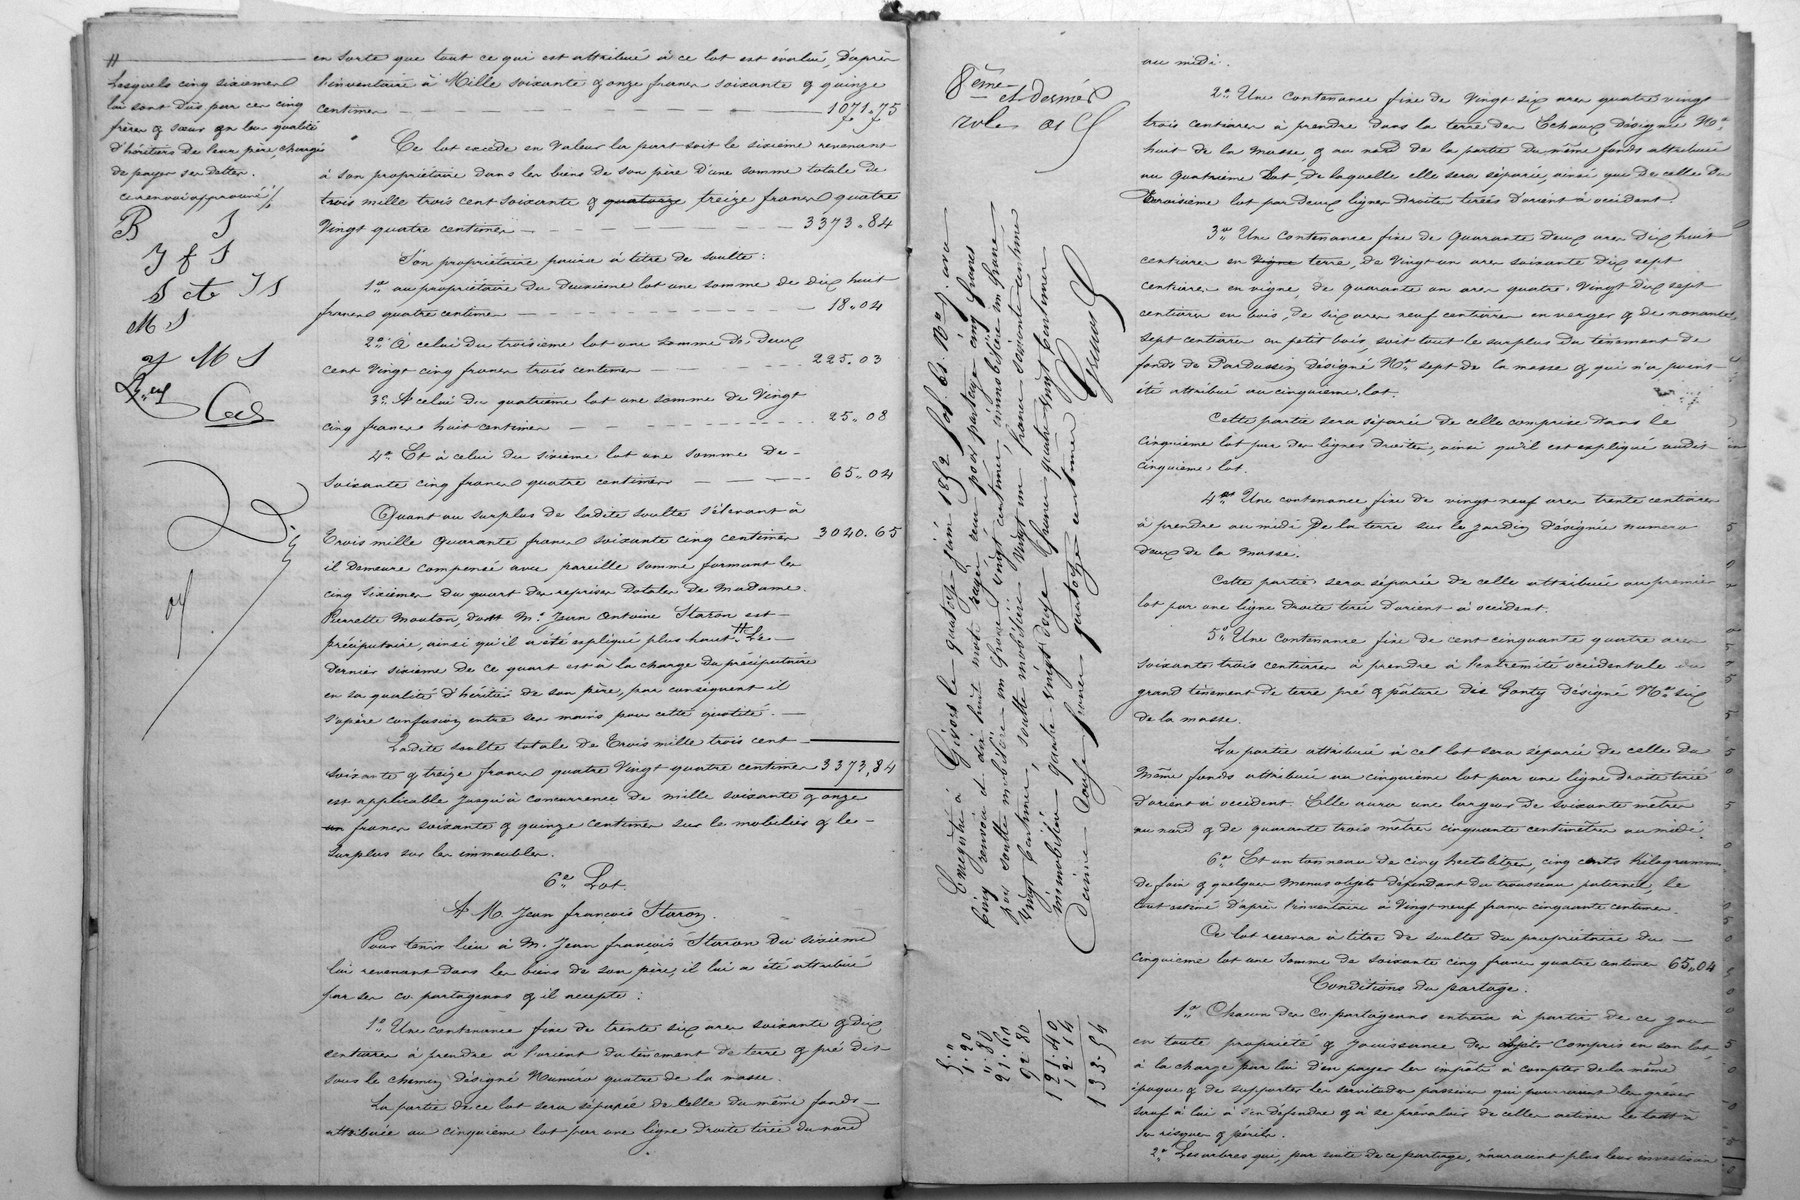 Lesquels cinq sixièmes
lui sont dus par ces cinq
frères & sœur en leur qualité
d'héritiers de leur père, chargé
de payer ses dettes.
ce renvoi approuvé /.
B S
J f S
S ct J S
M S
M S
en sorte que tout ce qui est attribué à ce lot est évalué, d'après
l'inventaire à Mille soixante & onze francs soixante & quinze
centimes 1071.75
Ce lot excède en valeur la part soit le sixième revenant
à son propriétaire dans les biens de son père d'une somme totale de
trois mille trois cent soixante & quatorze treize francs quatre
Vingt quatre centimes 3373.84
Son propriétaire paiera à titre de soulte :
1° au propriétaire du deuxième lot une somme de dix huit
francs quatre centimes 18.04
2° à celui du troisième lot une somme de deux
cent vingt cinq francs trois centimes 225.03
3° A celui du quatrième lot une somme de Vingt
cinq francs huit centimes 25.08
4° Et à celui du sixième lot une somme de
soixante cinq francs quatre centimes 65.04
Quant au surplus de ladite soulte s'élevant à
Trois mille Quarante francs soixante cinq centimes 3040.65
il demeure compensé avec pareille somme formant les
cinq sixièmes du quart des reprises dotales de Madame
Pierrette Mouton, dont Mr Jean Antoine Staron est
préciputaire, ainsi qu'il a été expliqué plus haut. # Le
dernier sixième de ce quart est à la charge du préciputaire
en sa qualité d'héritier de son père, par conséquent il
s'opère confusion entre ses mains pour cette quotité.
Ladite soulte totale de Trois mille trois cent
soixante & treize francs quatre Vingt quatre centimes 3373,84
est applicable jusqu'à concurrence de mille soixante & onze
un francs soixante & quinze centimes sur le mobilier & le
surplus sur les immeubles.
6e Lot.
A M. Jean françois Staron.
Pour tenir lieu à M. Jean françois Staron du sixième
lui revenant dans les biens de son père, il lui a été attribué
par ses co partageans & il accepte :
1° Une contenance fixe de trente six ares soixante & dix
centiares à prendre à l'orient du tènement de terre & pré dit
sous le chemin désigné Numéro quatre de la masse.
La partie de ce lot sera séparée de celle du même fonds
attribuée au cinquième lot par une ligne droite tirée du nord
8ème et dernier
rôle
Enregistré à Givors le quatorze juin 1852
cinq renvois et dix huit mots rayés reçu pour partage cinq francs
pour soulte mobilière un franc vingt centimes, immobilière un franc
Vingt centimes, soulte mobilière Vingt un francs soixante centimes
immobilière quatre vingt douze francs quatre vingt centimes
Décime douze francs quatorze centimes
5."
1.20
".80
21.60
92.80
121.40
12.14
133.54
au midi.
2° Une contenance fixe de Vingt six ares quatre vingt
trois centiares à prendre dans la terre des Echaux désignée No
huit de la masse, & au nord de la partie du même fonds attribuée
au quatrième Lot, de laquelle elle sera séparée, ainsi que de celle du
Troisième lot par deux lignes droites tirées d'orient à occident.
3° Une contenance fixe de Quarante deux ares dix huit
centiares en Vigne terre, de Vingt un ares soixante dix sept
centiares en vigne, de quarante un ares quatre Vingt dix sept
centiares en bois, de six ares neuf centiares en verger & de nonante
sept centiares en petit bois, soit tout le surplus du tènement de
fonds de Pardussin désigné No sept de la masse & qui n'a point
été attribué au cinquième lot.
Cette partie sera séparée de celle comprise dans le
cinquième lot par des lignes droites, ainsi qu'il est expliqué audit
cinquième lot.
4° Une contenance fixe de vingt neuf ares trente centiares
à prendre au midi de la terre sur le jardin désignée numéro
deux de la masse.
Cette partie sera séparée de celle attribuée au premier
lot par une ligne droite tirée d'orient à occident.
5° Une contenance fixe de cent cinquante quatre ares
soixante trois centiares à prendre à l'extrémité occidentale du
grand tènement de terre pré & pâture dit Gonty désigné No six
de la masse.
La partie attribuée à cet lot sera séparée de celle du
même fonds attribuée au cinquième lot par une ligne droite tirée
d'orient à occident. Elle aura une largeur de soixante mètres
au nord & de quarante trois mètres cinquante centimètres au midi.
6° Et un tonneau de cinq hectolitres, cinq cents Kilogrammes
de foin & quelques menus objets dépendant du trousseau paternel, le
tout estimé d'après l'inventaire à Vingt neuf francs cinquante centimes.
Ce lot recevra à titre de soulte du propriétaire du
cinquième lot une somme de soixante cinq francs quatre centimes 65.04
Conditions du partage.
1° Chacun des Co partageans entrera à partir de ce jour
en toute propriété & jouissance des objets compris en son lot,
à la charge par lui d'en payer les impôts à compter de la même
époque & de supporter les servitudes passives qui pourraient les grever
sauf à lui à s'en défendre & à se prévaloir de celles actives le tout à
ses risques & périls.
2° Les arbres qui, par suite de ce partage, n'auraient plus leur investison